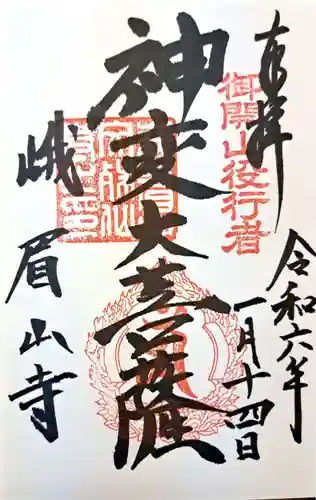 奉拝
令和六年
一月十四日
御開山役行者
神変大菩薩
峨眉山寺